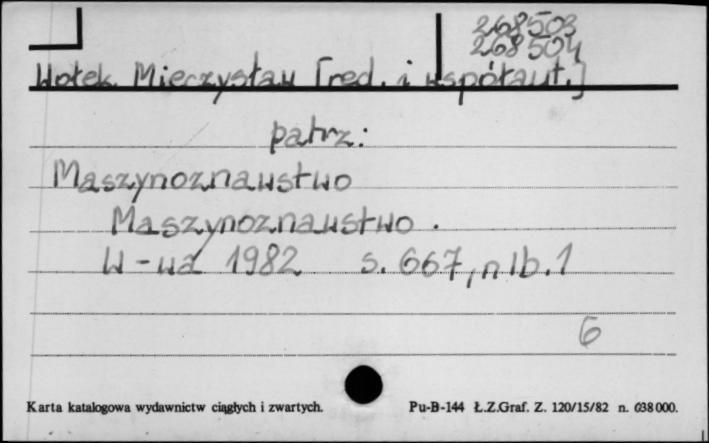 268503
268504
Wołek Mieczysław [red. i współaut.]
patrz:
Maszynoznawstwo
Maszynoznawstwo.
W-wa 1982 s. 667, nlb. 1
6
Karta katalogowa wydawnictw ciągłych i zwartych. Pu-B-144 Ł.Z.Graf. Z. 120/15/82 n. 038000.